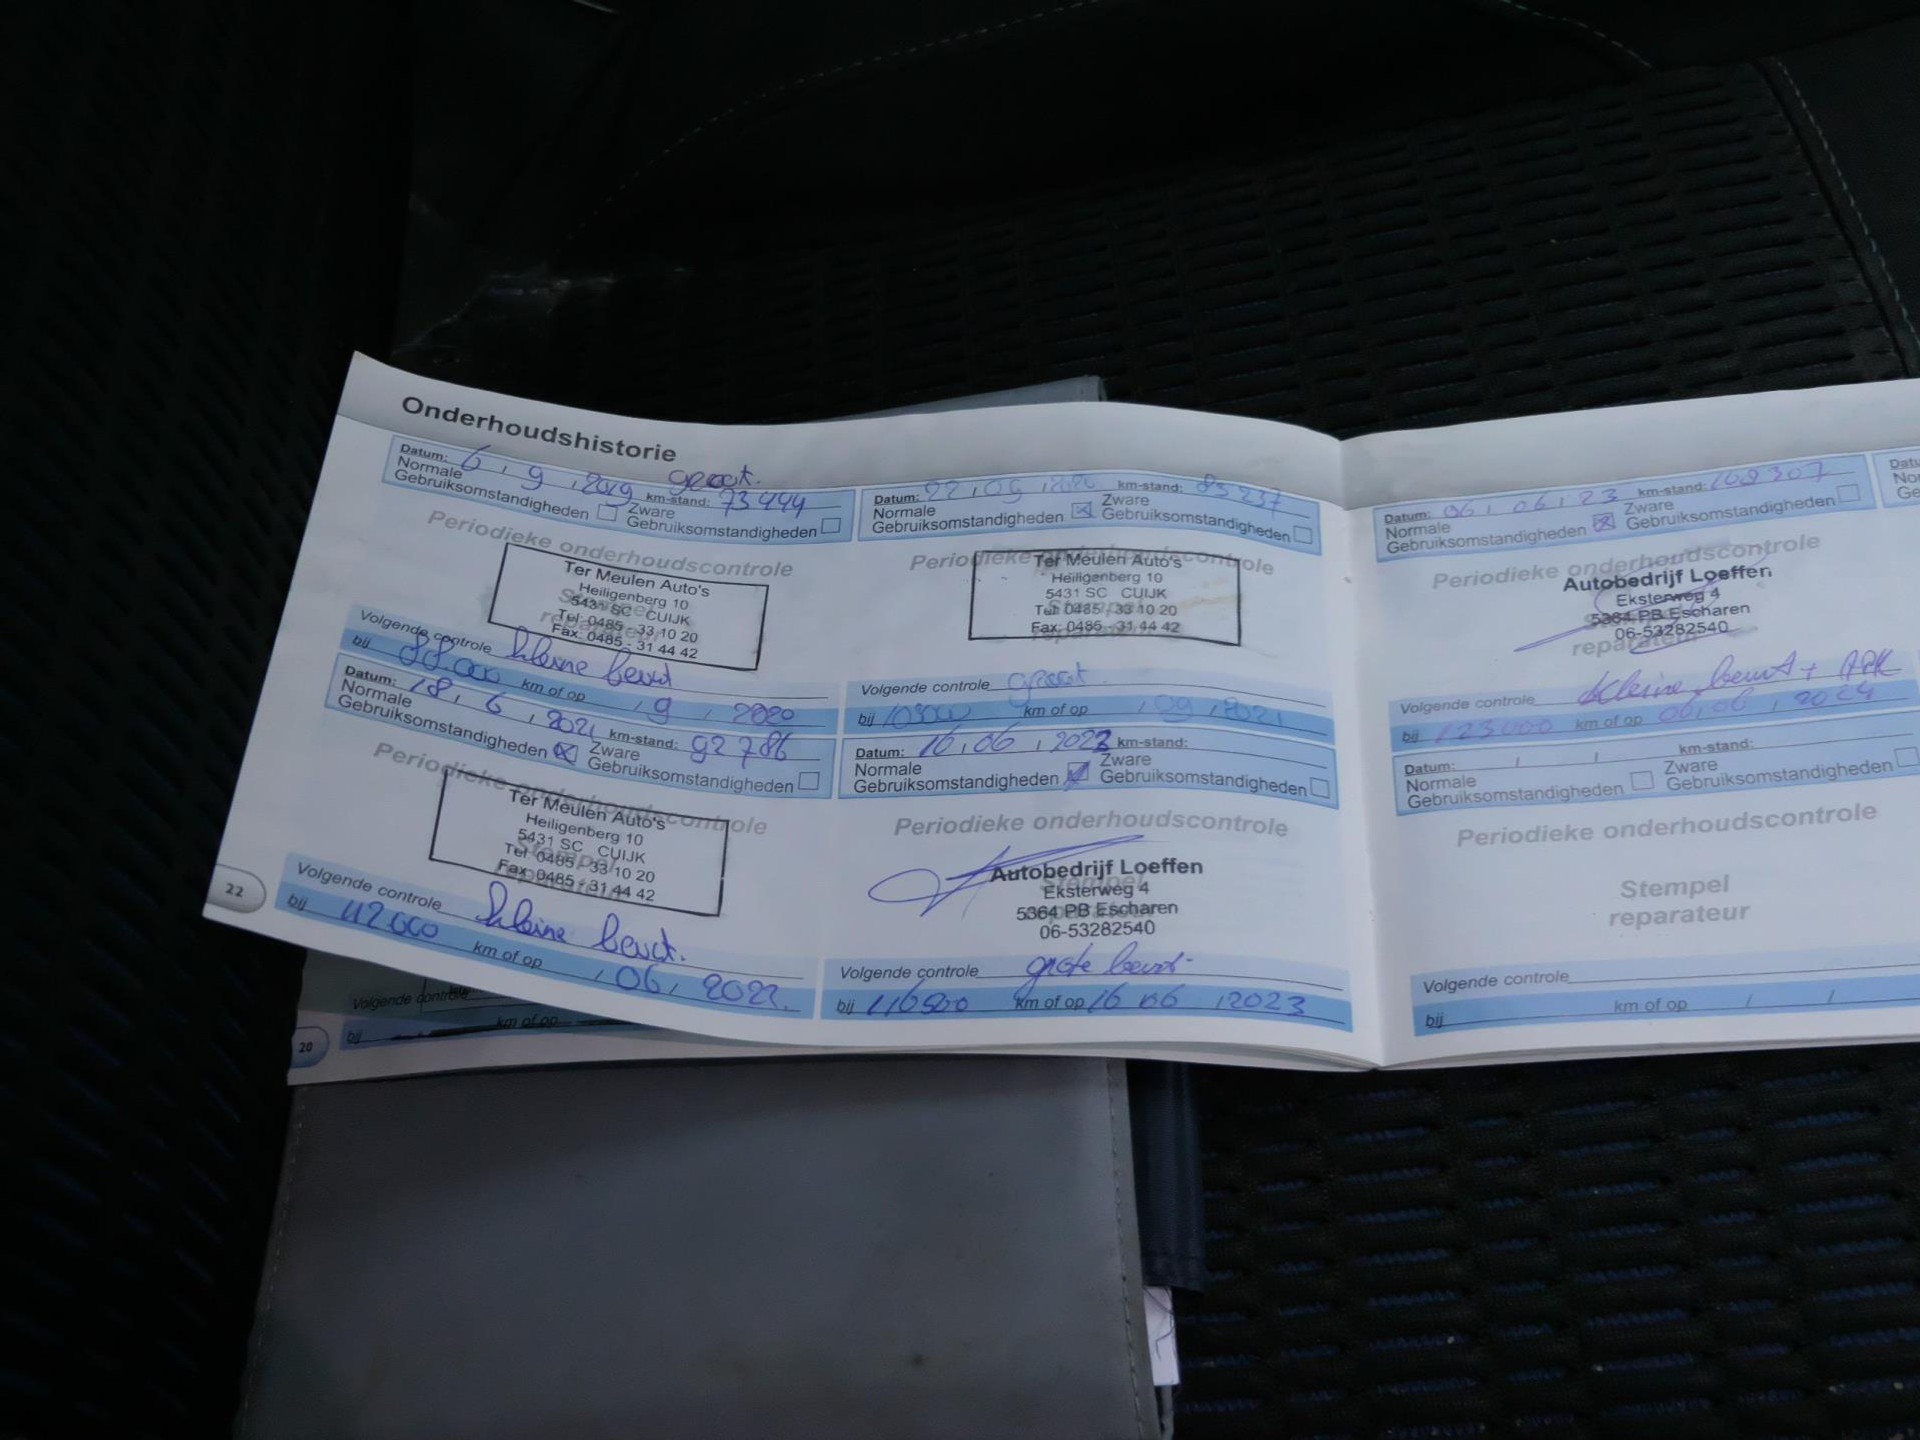 Onderhoudshistorie
Datum: 6, 9, 2019 groot. km-stand: 73444
Normale Gebruiksomstandigheden Zware Gebruiksomstandigheden
Periodieke onderhoudscontrole
Stempel reparateur
Ter Meulen Auto's
Heiligenberg 10
5431 SC CUIJK
Tel: 0485 - 33 10 20
Fax: 0485 - 31 44 42
Volgende controle kleine beurt
bij 88.000 km of op , 9 , 2020
Datum: 18, 6, 2021 km-stand: 92786
Normale Gebruiksomstandigheden Zware Gebruiksomstandigheden
Periodieke onderhoudscontrole
Stempel reparateur
Ter Meulen Auto's
Heiligenberg 10
5431 SC CUIJK
Tel: 0485 - 33 10 20
Fax: 0485 - 31 44 42
Volgende controle kleine beurt.
bij 112000 km of op , 06, 2022.
22
Volgende controle
bij km of op
20
Datum: 22, 09, 2020 km-stand: 83237
Normale Gebruiksomstandigheden Zware Gebruiksomstandigheden
Periodieke onderhoudscontrole
Ter Meulen Auto's
Heiligenberg 10
5431 SC CUIJK
Tel: 0485 - 33 10 20
Fax: 0485 - 31 44 42
Volgende controle groot.
bij km of op , 09, 2021
Datum: 16, 06, 2022 km-stand:
Normale Gebruiksomstandigheden Zware Gebruiksomstandigheden
Periodieke onderhoudscontrole
Stempel reparateur
Autobedrijf Loeffen
Eksterweg 4
5364 PB Escharen
06-53282540
Volgende controle grote beurt
bij 116500 km of op 16 06 , 2023
Datum: 06, 06, 23 km-stand: 108307
Normale Gebruiksomstandigheden Zware Gebruiksomstandigheden
Periodieke onderhoudscontrole
Stempel reparateur
Autobedrijf Loeffen
Eksterweg 4
5364 PB Escharen
06-53282540
Volgende controle kleine beurt + APK
bij 123000 km of op 06, 06, 2024
Datum: / / km-stand:
Normale Gebruiksomstandigheden Zware Gebruiksomstandigheden
Periodieke onderhoudscontrole
Stempel
reparateur
Volgende controle
bij km of op / /